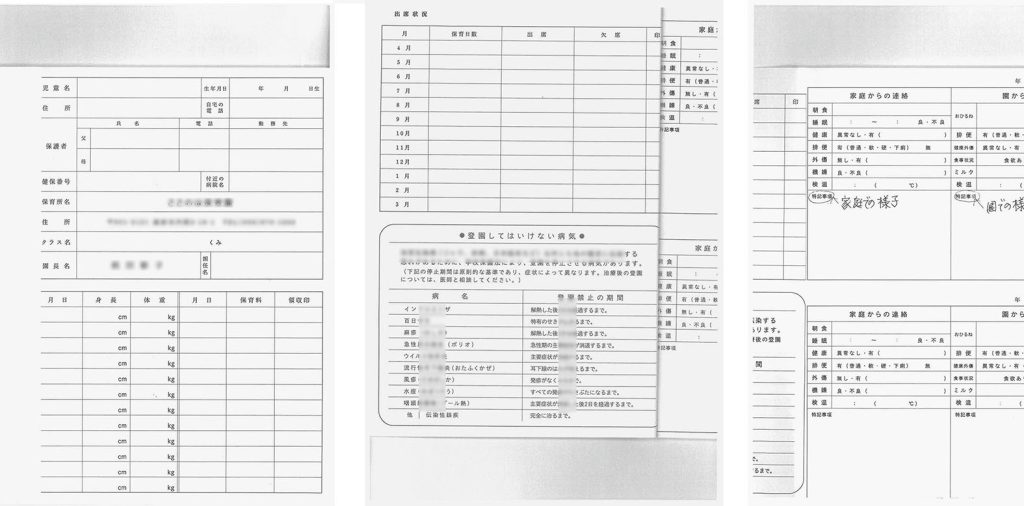 児童名 生年月日 年 月 日生
住所 自宅の電話
氏名 電話 勤務先
保護者 父
母
健保番号 付近の病院名
保育所名
住所
クラス名 くみ
園長名 担任名
月日 身長 体重 月日 保育料 領収印
cm kg
cm kg
cm kg
cm kg
cm kg
cm kg
cm kg
cm kg
cm kg
cm kg
cm kg
cm kg
出席状況
月 保育日数 出席 欠席 印
4月
5月
6月
7月
8月
9月
10月
11月
12月
1月
2月
3月
●登園してはいけない病気●
する
登園を停止させる病気があります。
(下記の停止期間は原則的な基準であり、症状によって異なります。治療後の登園
については、医師と相談してください。)
病名 登園禁止の期間
イン ザ 解熱した後 過するまで。
百日 特有のせき るまで。
麻疹 解熱した後 過するまで。
急性 (ポリオ) 急性期の主 が消退するまで。
ウイル 主要症状が るまで。
流行 炎(おたふくかぜ) 耳下腺のは るまで。
風疹 か) 発疹がなく
水痘 う) すべての発 さぶたになるまで。
咽頭 プール熱) 主要症状が た後2日を経過するまで。
他 伝染性膿疾 完全に治るまで。
家庭か
朝食
睡眠 :
健康 異常なし・
排便 有(普通・
外傷 無し・有(
機嫌 良・不良(
検温 :
特記事項
家庭か
朝食
睡眠 :
健康 異常なし・
排便 有(普通・
外傷 無し・有(
機嫌 良・不良(
検温 :
特記事項
席 印
年
家庭からの連絡 園か
朝食 おひるね
睡眠 : ~ : 良・不良
健康 異常なし・有( ) 排便 有(普通
排便 有(普通・軟・硬・下痢) 無 健康外傷 異常なし・有
外傷 無し・有( ) 食事状況 食欲あ
機嫌 良・不良( ) ミルク
検温 : ( ℃) 検温 : (
特記事項 家庭での様子 特記事項 園での様
年
家庭からの連絡 園か
朝食 おひるね
睡眠 : ~ : 良・不良
健康 異常なし・有( ) 排便 有(普通
排便 有(普通・軟・硬・下痢) 無 健康外傷 異常なし・有
外傷 無し・有( ) 食事状況 食欲あ
機嫌 良・不良( ) ミルク
検温 : ( ℃) 検温 : (
特記事項 特記事項
染する
ります。
後の登園
間
で。
るまで。